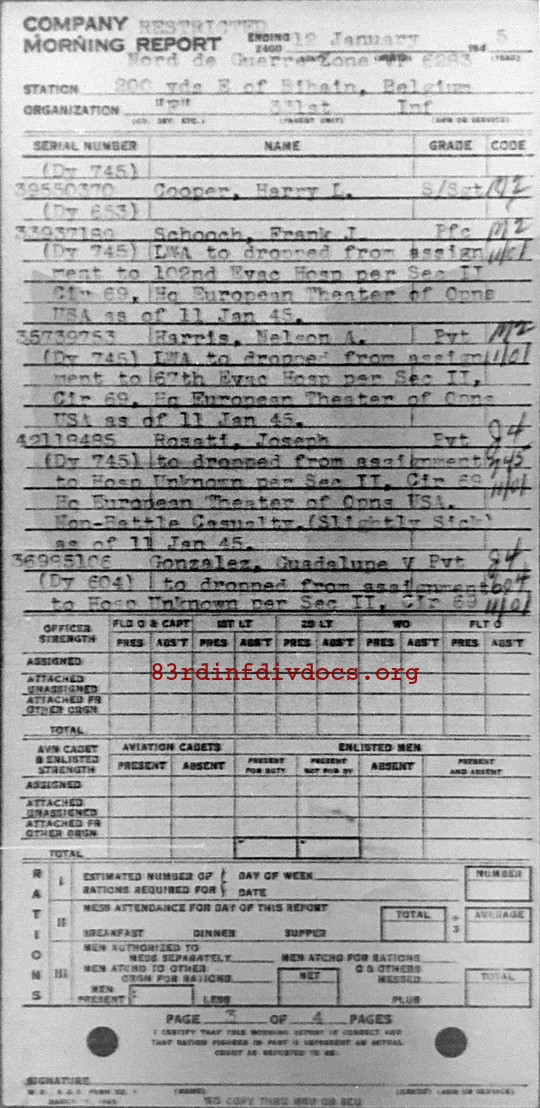 COMPANY RESTRICTED
MORNING REPORT ENDING 2400 12 January 194 5
Nord de Guerre Zone
STATION 200 yds E of Bihain, Belgium
ORGANIZATION 331st Inf
(CO, DET, ETC.) (PARENT UNIT) (ARM OR SERVICE)
SERIAL NUMBER NAME GRADE CODE
(Dy 745)
39550370 Cooper, Harry L. S/Sgt M2
(Dy 653)
33937180 Schooch, Frank J. Pfc M2
(Dy 745) LWA to dropped from assign
ment to 102nd Evac Hosp per Sec II
Cir 69, Hq European Theater of Opns
USA as of 11 Jan 45.
35739753 Harris, Nelson A. Pvt M2
(Dy 745) LWA to dropped from assign
ment to 67th Evac Hosp per Sec II,
Cir 69, Hq European Theater of Opns
USA as of 11 Jan 45.
42119495 Rosati, Joseph Pvt
(Dy 745) to dropped from assignment
to Hosp Unknown per Sec II, Cir 69
Hq European Theater of Opns USA.
Non-Battle Casualty.(Slightly Sick)
as of 11 Jan 45.
36985106 Gonzalez, Guadalupe V Pvt
(Dy 604) to dropped from assignment
to Hosp Unknown per Sec II, Cir 69
OFFICER STRENGTH FLD O & CAPT 1ST LT 2D LT WO FLT O
PRES ABS'T PRES ABS'T PRES ABS'T PRES ABS'T PRES ABS'T
ASSIGNED
ATTACHED UNASSIGNED
ATTACHED FR OTHER ORGN
TOTAL
83rdinfdivdocs.org
AVN CADET & ENLISTED STRENGTH AVIATION CADETS ENLISTED MEN
PRESENT ABSENT PRESENT FOR DUTY PRESENT NOT FOR DY ABSENT PRESENT AND ABSENT
ASSIGNED
ATTACHED UNASSIGNED
ATTACHED FR OTHER ORGN
TOTAL
RATIONS
I ESTIMATED NUMBER OF RATIONS REQUIRED FOR { DAY OF WEEK DATE NUMBER
II MESS ATTENDANCE FOR DAY OF THIS REPORT TOTAL ÷ 3 AVERAGE
BREAKFAST DINNER SUPPER
III MEN AUTHORIZED TO MESS SEPARATELY MEN ATCHD FOR RATIONS
MEN ATCHD TO OTHER ORGN FOR RATIONS NET O & OTHERS MESSED TOTAL
MEN PRESENT LESS PLUS
PAGE 3 OF 4 PAGES
I CERTIFY THAT THIS MORNING REPORT IS CORRECT AND
THAT RATION FIGURES IN PART III REPRESENT AN ACTUAL
COUNT AS REPORTED TO ME:
SIGNATURE
(NAME) (GRADE) (ARM OR SERVICE)